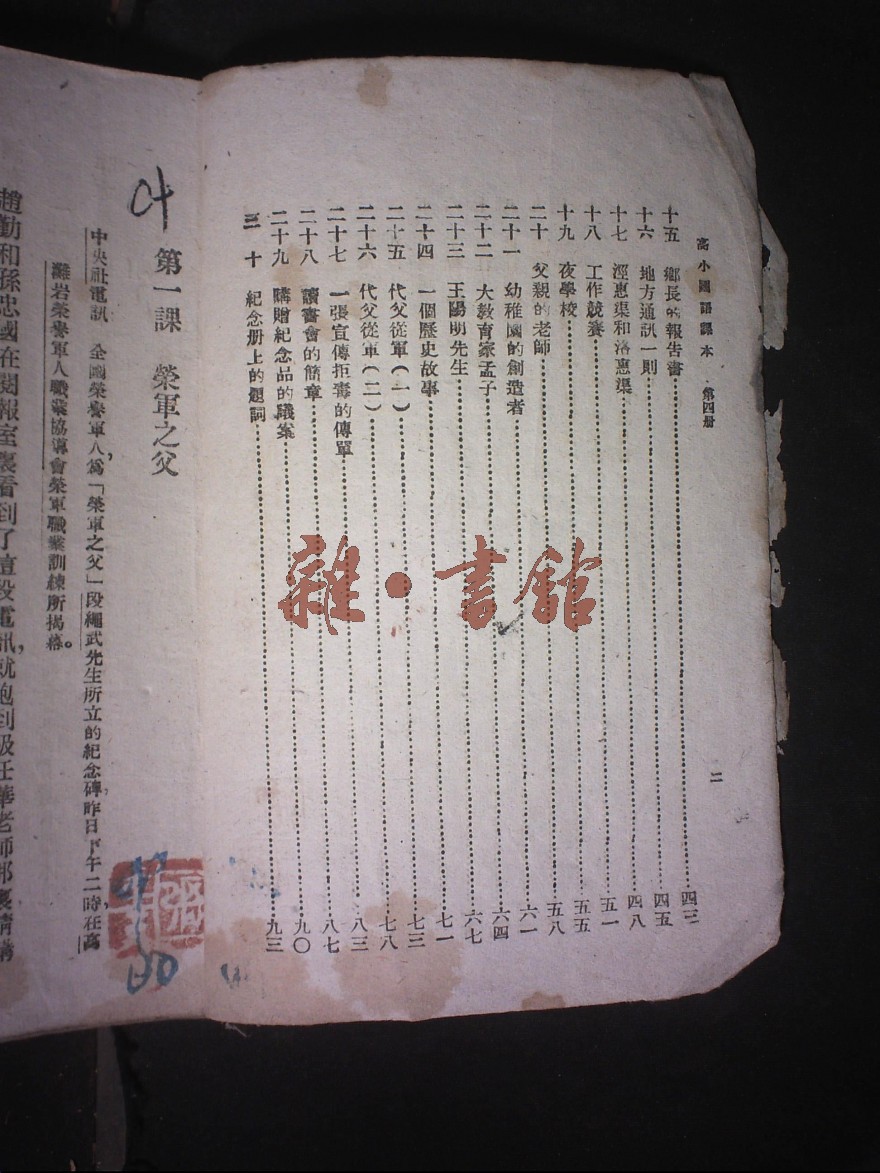 高小國語課本 第四册
二
十五 鄉長的報告書 四三
十六 地方通訊一則 四五
十七 涇惠渠和洛惠渠 四八
十八 工作競賽 五一
十九 夜學校 五五
二十 父親的老師 五八
二十一 幼稚園的創造者 六一
二十二 大教育家孟子 六四
二十三 王陽明先生 六七
二十四 一個歷史故事 七一
二十五 代父從軍(一) 七三
二十六 代父從軍(二) 七八
二十七 一張宣傳拒毒的傳單 八三
二十八 讀書會的簡章 八七
二十九 購贈紀念品的議案 九〇
三十 紀念册上的題詞 九三
第一課 榮軍之父
中央社電訊 全國榮譽軍人,爲「榮軍之父」段繩武先生所立的紀念碑,昨日下午二時在高
灘岩榮譽軍人職業協導會榮軍職業訓練所揭幕。
趙勤和孫忠國在閱報室裏看到了這段電訊,就跑到級任華老師那裏請講
雜·書館